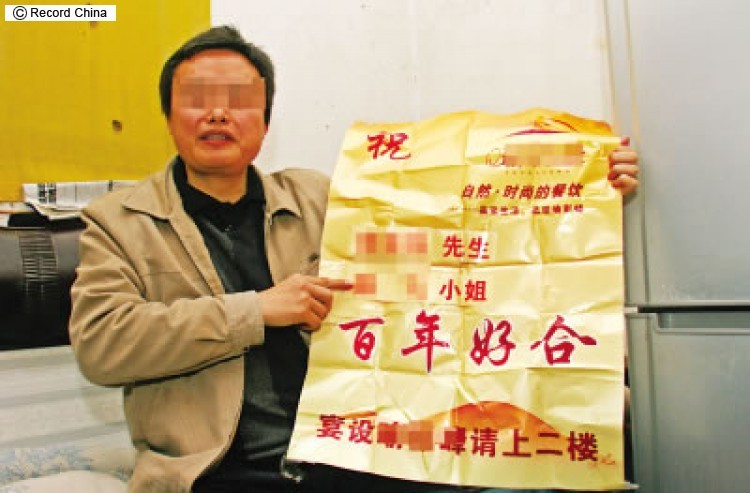 © Record China
祝
自然·时尚的餐饮
先生
小姐
百年好合
宴设 请上二楼